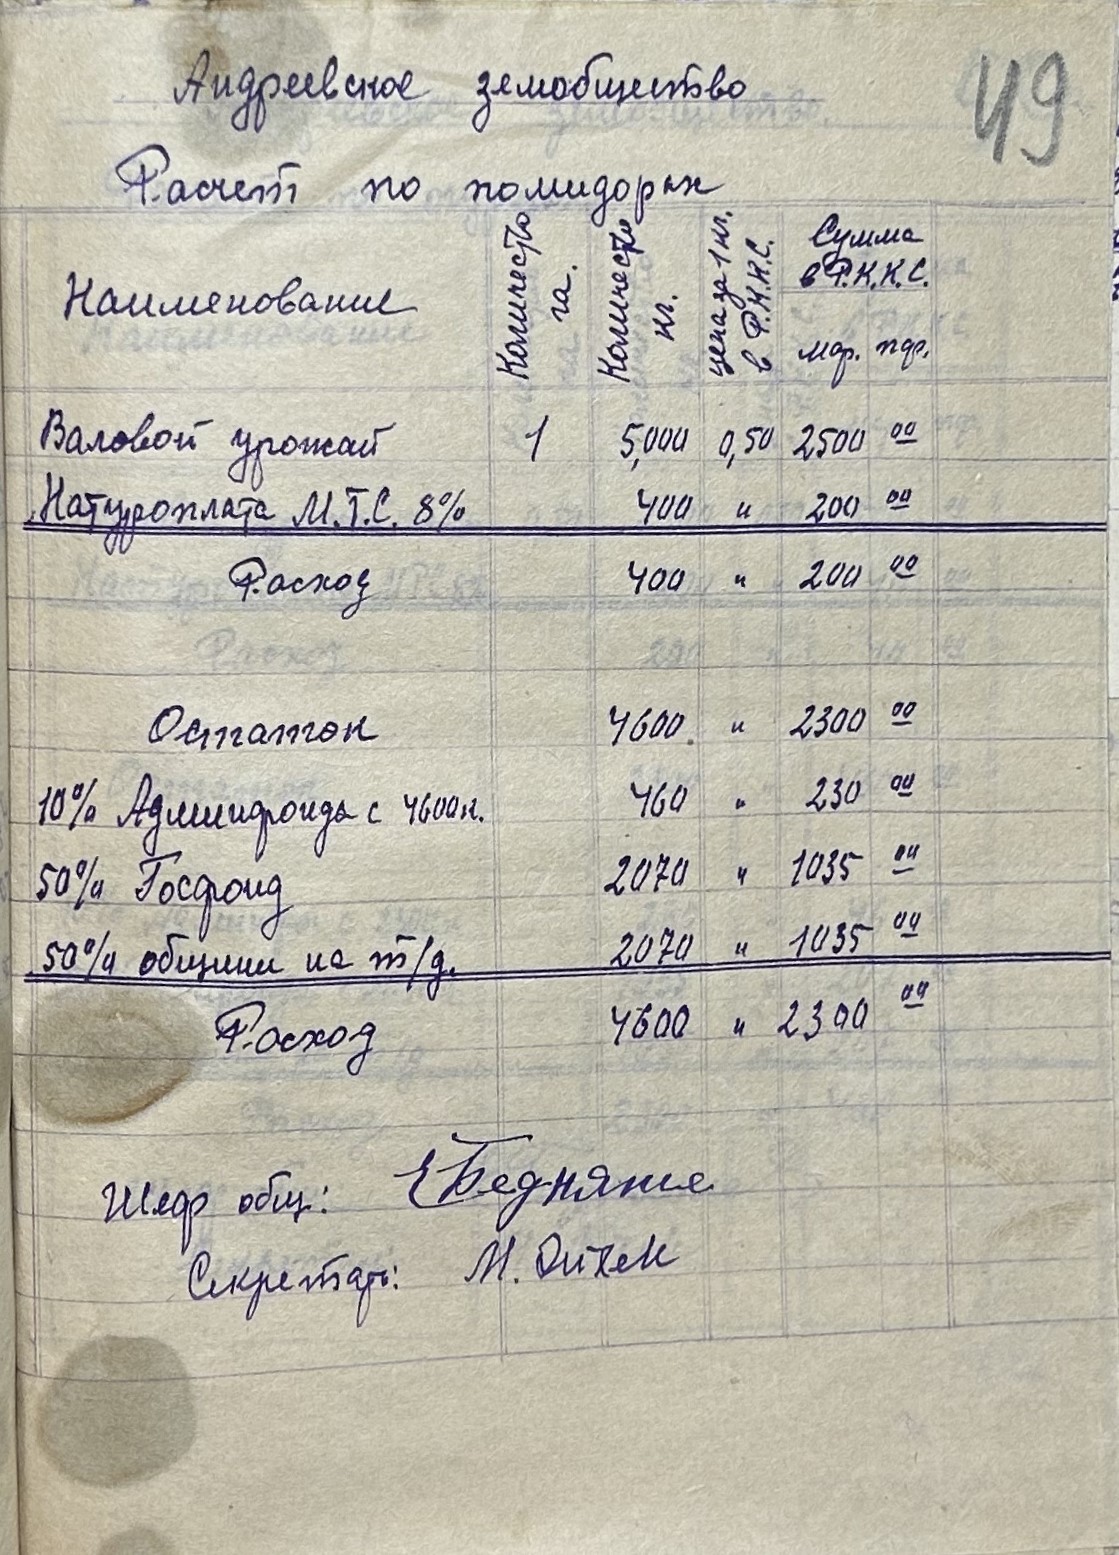 49
Андреевское земобщество
Расчет по помидорам
Наименование Количество га. Количество кг. цена за 1 кг. в Р.К.К.С. Сумма в Р.К.К.С. мар. пф.
Валовой урожай 1 5,000 0,50 2500 00
Натуроплата М.Т.С. 8% 400 " 200 00
Расход 400 " 200 00
Остаток 4600 " 2300 00
10% Админфонда с 4600к. 460 " 230 00
50% Госфонд 2070 " 1035 00
50% общине на т/д. 2070 " 1035 00
Расход 4600 " 2300 00
Шеф общ:
Секретарь: М.